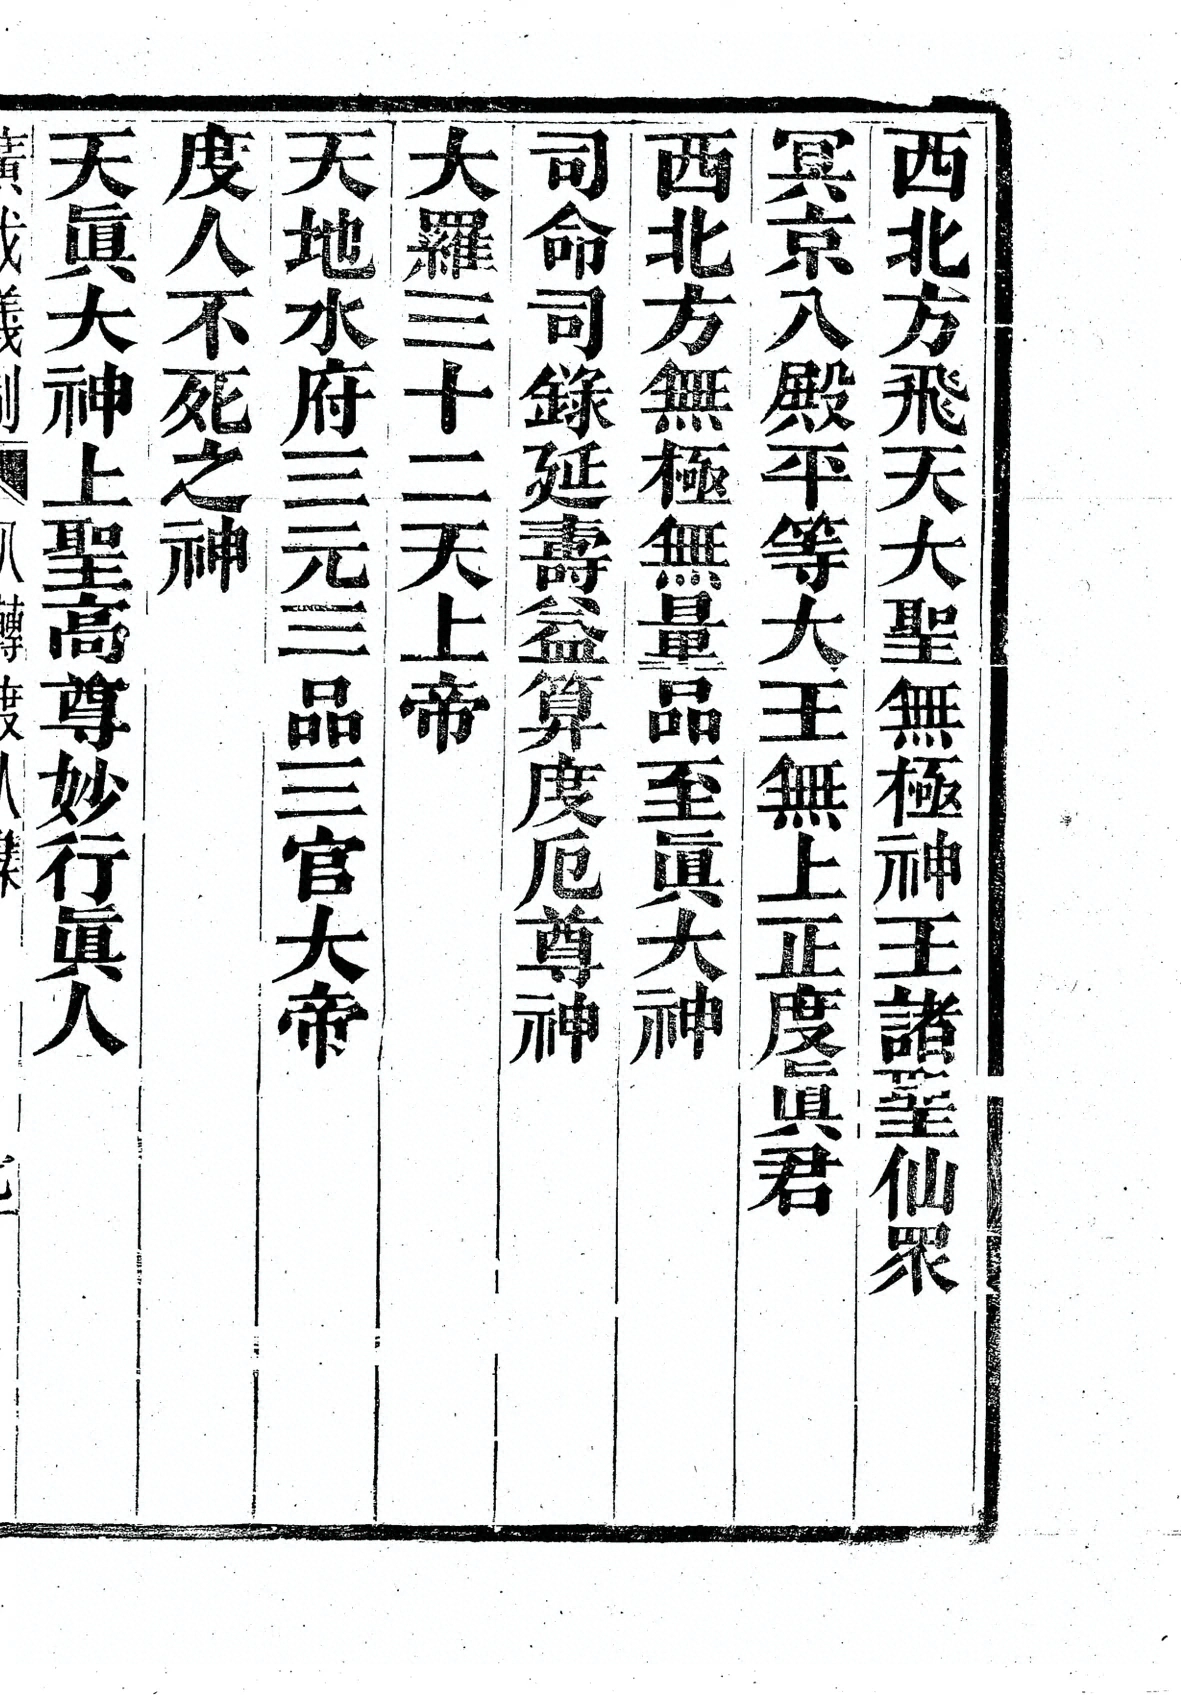 西北方飛天大聖無極神王諸聖仙眾
冥京八殿平等大王無上正度眞君
西北方無極無量品至眞大神
司命司錄延壽益算度厄尊神
大羅三十二天上帝
天地水府三元三品三官大帝
度人不死之神
天眞大神上聖高尊妙行眞人